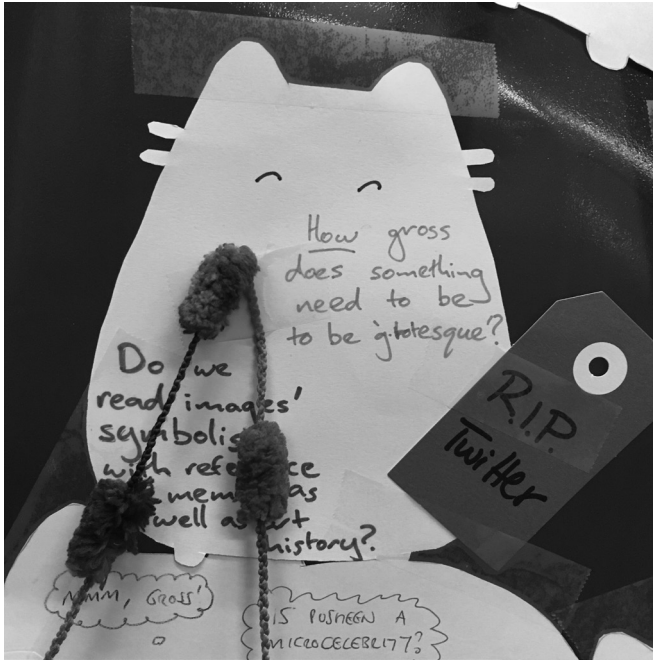 How gross
does something
need to be
to be 'grotesque?
Do we
read images'
with
as
well as
history?
R.I.P
Twitter
MMM, GROSS!
IS PUSHEEN A
MICROCELEBRITY?